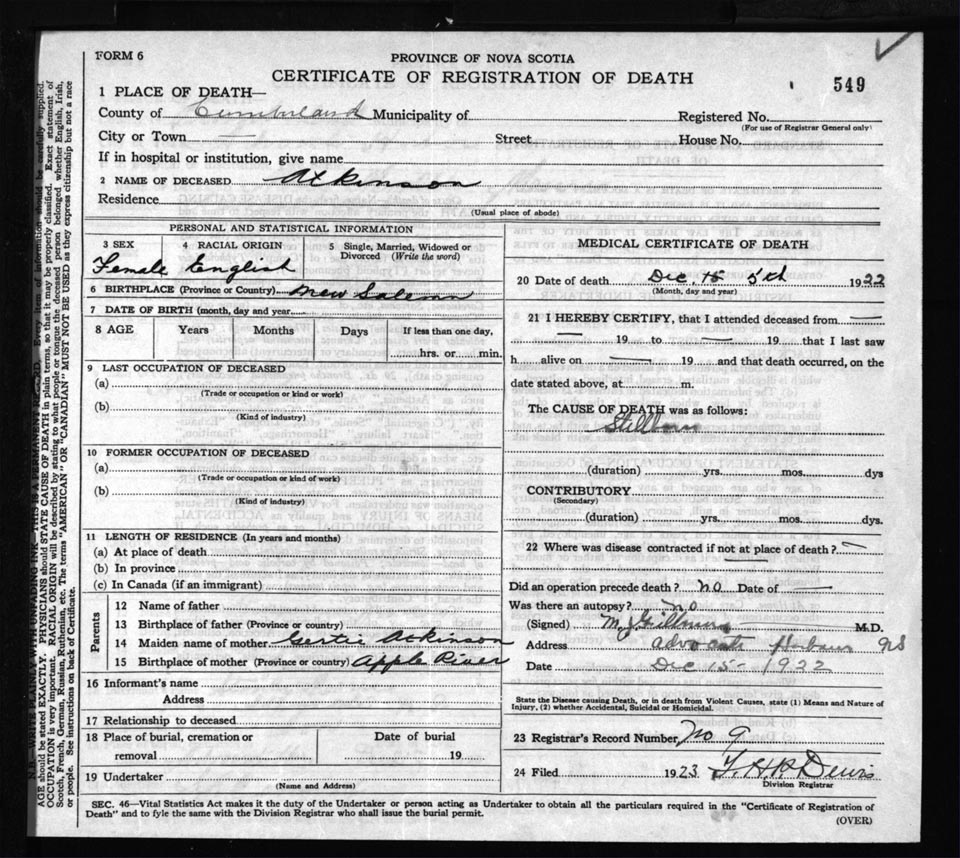 FORM 6
PROVINCE OF NOVA SCOTIA
CERTIFICATE OF REGISTRATION OF DEATH
549
1 PLACE OF DEATH—
County of Cumberland Municipality of
Registered No.
(For use of Registrar General only)
City or Town — Street House No.
If in hospital or institution, give name
2 NAME OF DECEASED Atkinson
Residence
(Usual place of abode)
PERSONAL AND STATISTICAL INFORMATION
3 SEX
Female
4 RACIAL ORIGIN
English
5 Single, Married, Widowed or
Divorced (Write the word)
6 BIRTHPLACE (Province or Country) New Salem
7 DATE OF BIRTH (month, day and year)
8 AGE Years Months Days If less than one day,
hrs. or min.
9 LAST OCCUPATION OF DECEASED
(a)
(Trade or occupation or kind or work)
(b)
(Kind of industry)
10 FORMER OCCUPATION OF DECEASED
(a)
(Trade or occupation or kind of work)
(b)
(Kind of industry)
11 LENGTH OF RESIDENCE (In years and months)
(a) At place of death
(b) In province
(c) In Canada (if an immigrant)
Parents
12 Name of father
13 Birthplace of father (Province or country)
14 Maiden name of mother Gertie Atkinson
15 Birthplace of mother (Province or country) Apple River
16 Informant's name
Address
17 Relationship to deceased
18 Place of burial, cremation or
removal
Date of burial
19
19 Undertaker
(Name and Address)
MEDICAL CERTIFICATE OF DEATH
20 Date of death Dec. 5th 1922
(Month, day and year)
21 I HEREBY CERTIFY, that I attended deceased from —
— 19 to — 19 that I last saw
h alive on — 19 and that death occurred, on the
date stated above, at m.
The CAUSE OF DEATH was as follows:
Stillborn
(duration) yrs. mos. dys
CONTRIBUTORY
(Secondary)
(duration) yrs. mos. dys.
22 Where was disease contracted if not at place of death? —
Did an operation precede death? no Date of —
Was there an autopsy? no
(Signed) M.D.
Address Advocate Harbour NS
Date Dec 15 - 1922
State the Disease causing Death, or in death from Violent Causes, state (1) Means and Nature of
Injury, (2) whether Accidental, Suicidal or Homicidal.
23 Registrar's Record Number No 9
24 Filed 1923
Division Registrar
SEC. 46—Vital Statistics Act makes it the duty of the Undertaker or person acting as Undertaker to obtain all the particulars required in the "Certificate of Registration of
Death" and to fyle the same with the Division Registrar who shall issue the burial permit.
(OVER)
N.B.—WRITE PLAINLY WITH UNFADING INK—THIS IS A PERMANENT RECORD. Every item of information should be carefully supplied.
AGE should be stated EXACTLY. PHYSICIANS should STATE CAUSE OF DEATH in plain terms, so that it may be properly classified. Exact statement of
OCCUPATION is very important. RACIAL ORIGIN will be described by stating to what people or tongue the deceased person belonged whether English, Irish,
Scotch, French, German, Russian, Ruthenian, etc. The terms "AMERICAN" OR "CANADIAN" MUST NOT BE USED as they express citizenship but not a race
or people. See instructions on back of Certificate.